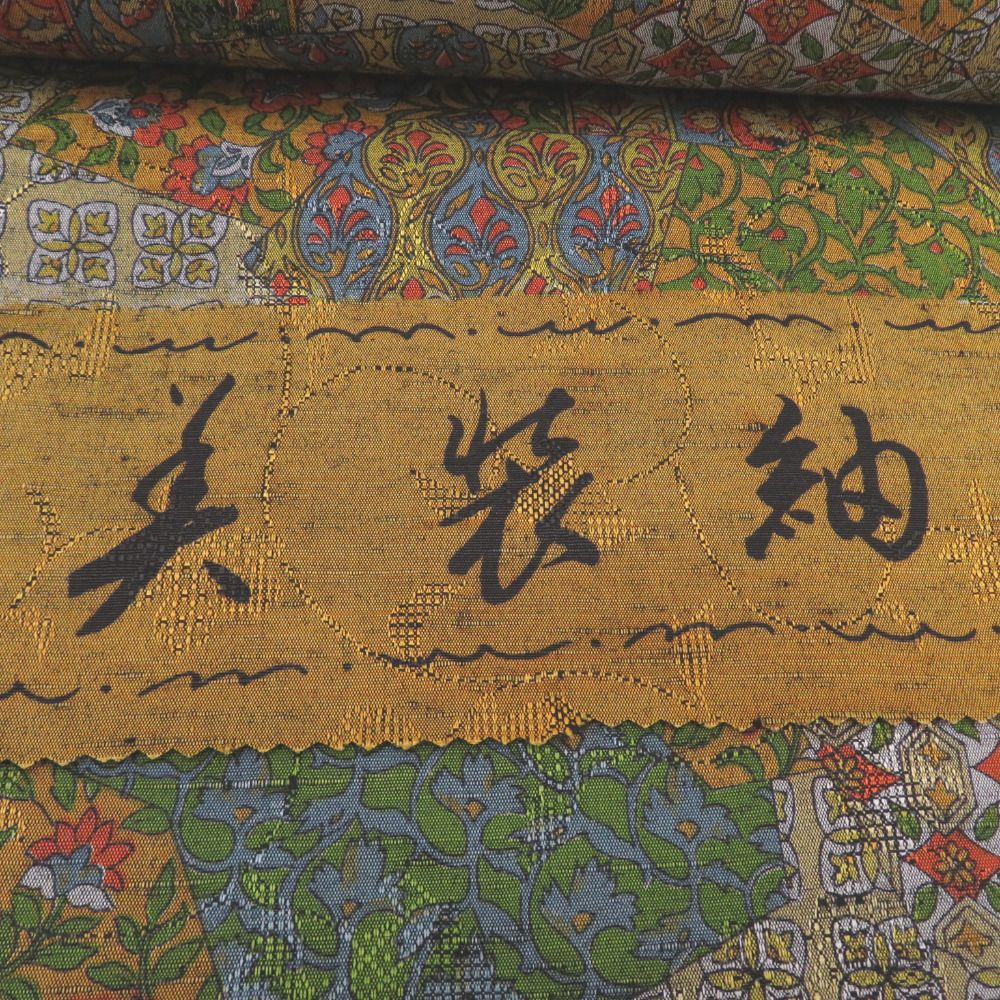 美装紬